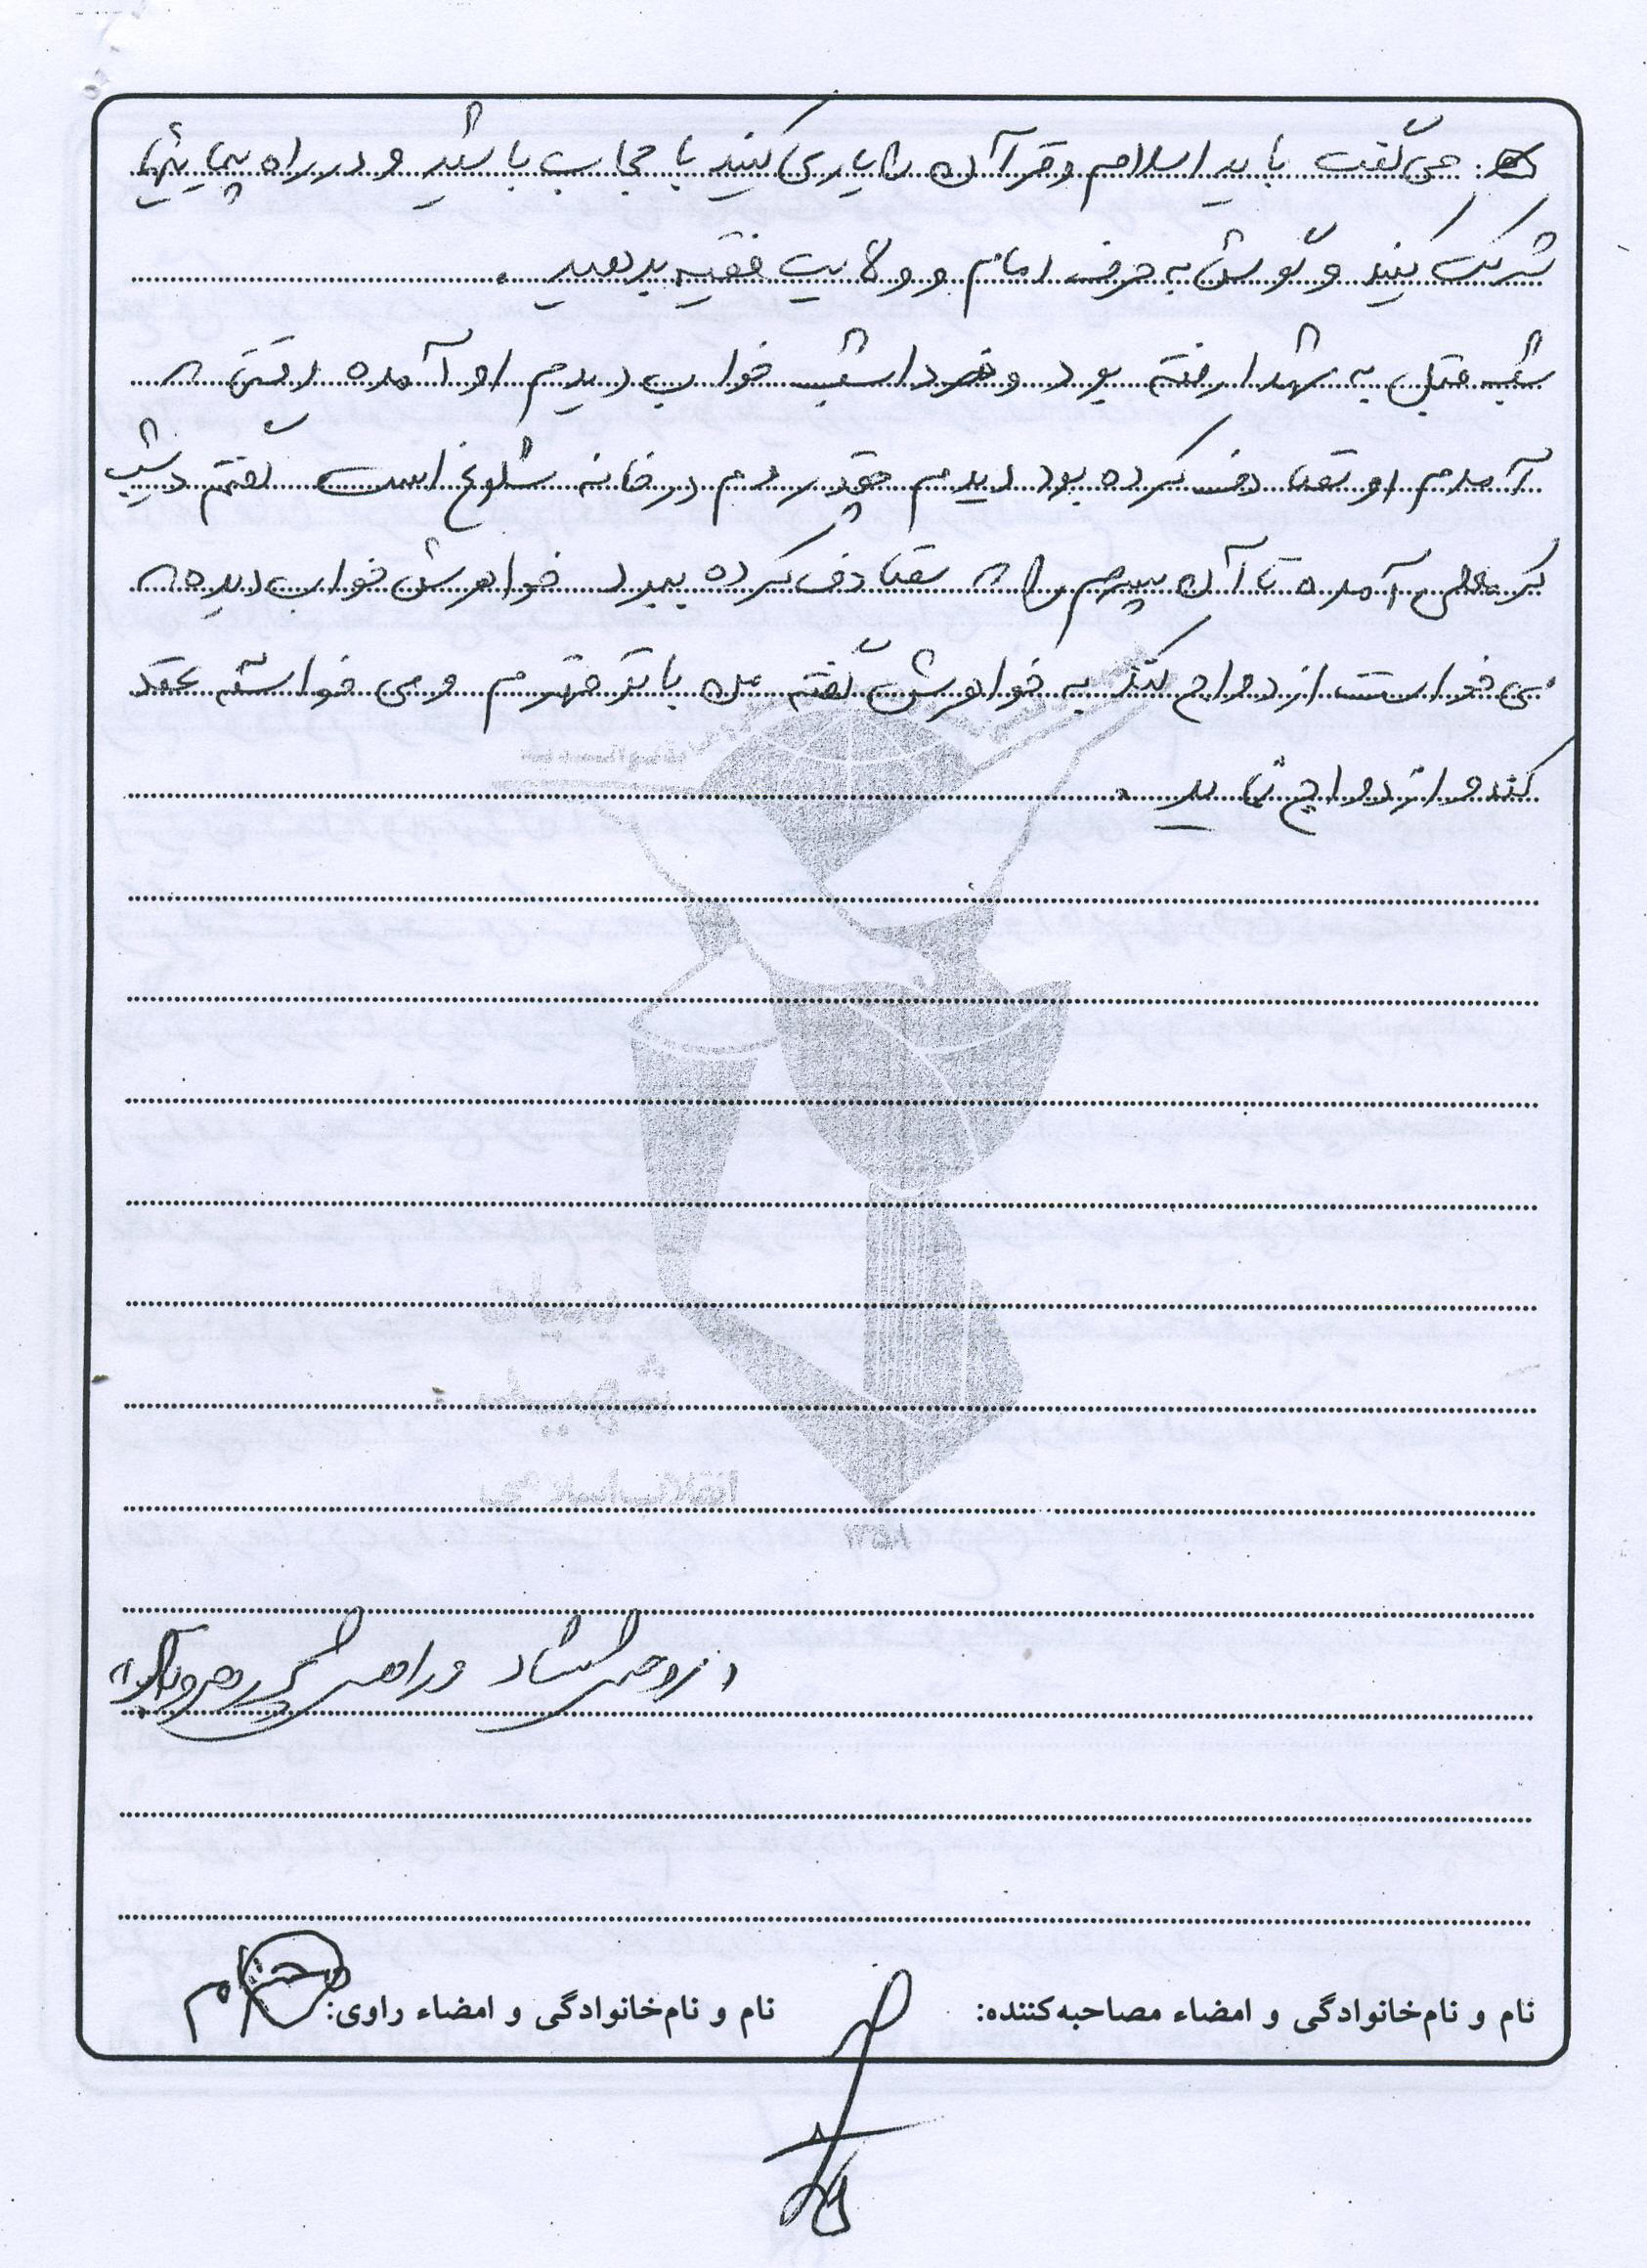 می گفت باید اسلام و قرآن را یاری کنید با حجاب باشید و در راه پیمایی‌ها
شرکت کنید و گوش به حرف امام و ولایت فقیه بدهید.
شب قبل به شهدا رفته بود و فردا شب خواب دیدم او آمده رفتن
آمدم او تصادف کرده بود دیدم چقدر مردم در خانه شلوغ است گفتم دیشب
کربلایی آمده تا آن پسرم را تصادف کرده ببرد خواهرش خواب دیده
می خواست ازدواج کند به خواهرش گفته من با تو قهرم و می خواسته عقد
کند و ازدواج نماید.
نام و نام‌خانوادگی و امضاء مصاحبه‌کننده:
نام و نام‌خانوادگی و امضاء راوی: